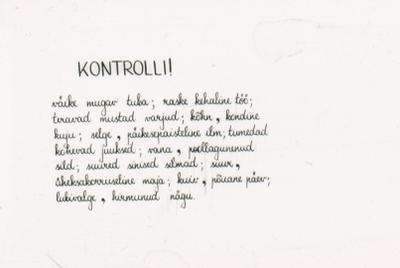 KONTROLLI!
väike mugav tuba; raske kehaline töö;
teravad mustad varjud; kõhn, kendine
kuju; selge, päikesepaisteline ilm; tumedad
kohevad juuksed; vana, poollagunenud
sild; suured sinised silmad; suur,
üheksakorruseline maja; kuiv, põuane päev;
lubivalge, hirmunud nägu.